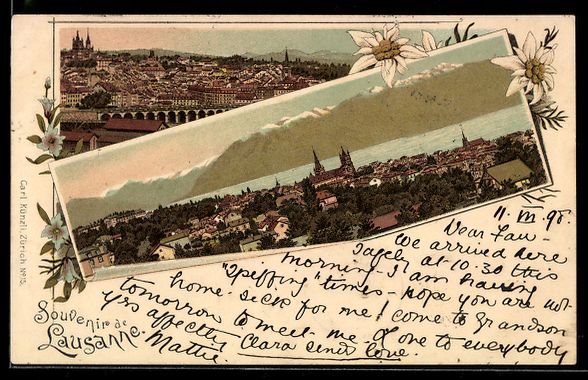 Carl Künzli, Zürich No 15.
Souvenir de
Lausanne.
11. VI. 98.
Dear Fan-
We arrived here
at 10:30 this
morning - I am having
"Speffing" times - hope you are not
home-sick for me! come to Grandson
tomorrow to meet me. Love to everybody
Yrs affectly Clara sends love.
Mattie.